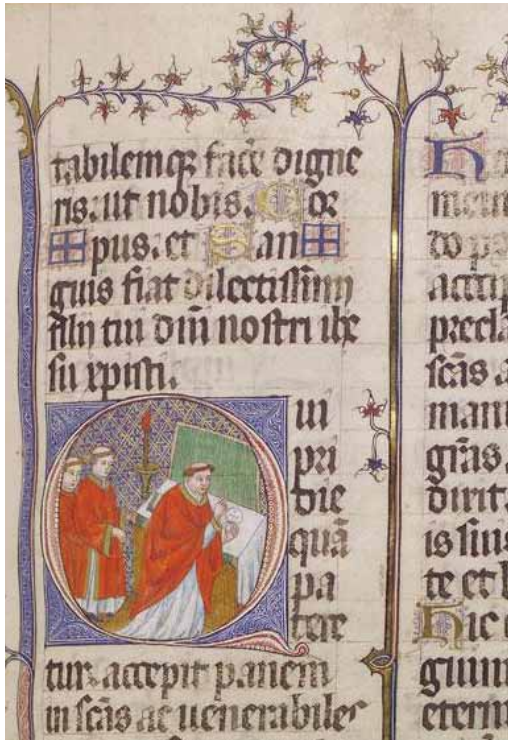 tabilemq; face digne
ris. ut nobis. Cor
pus. et San
guis fiat dilectissimi
filii tui dni nostri ihe
su xpisti.
Qui
pri
die
quã
pa
tere
tur. accepit panem
in scãs ac uenerabiles
H
do
accip
precla
scãs a
manu
grãs.
dixit.
is suis
te et
Hic
guinis
eterni